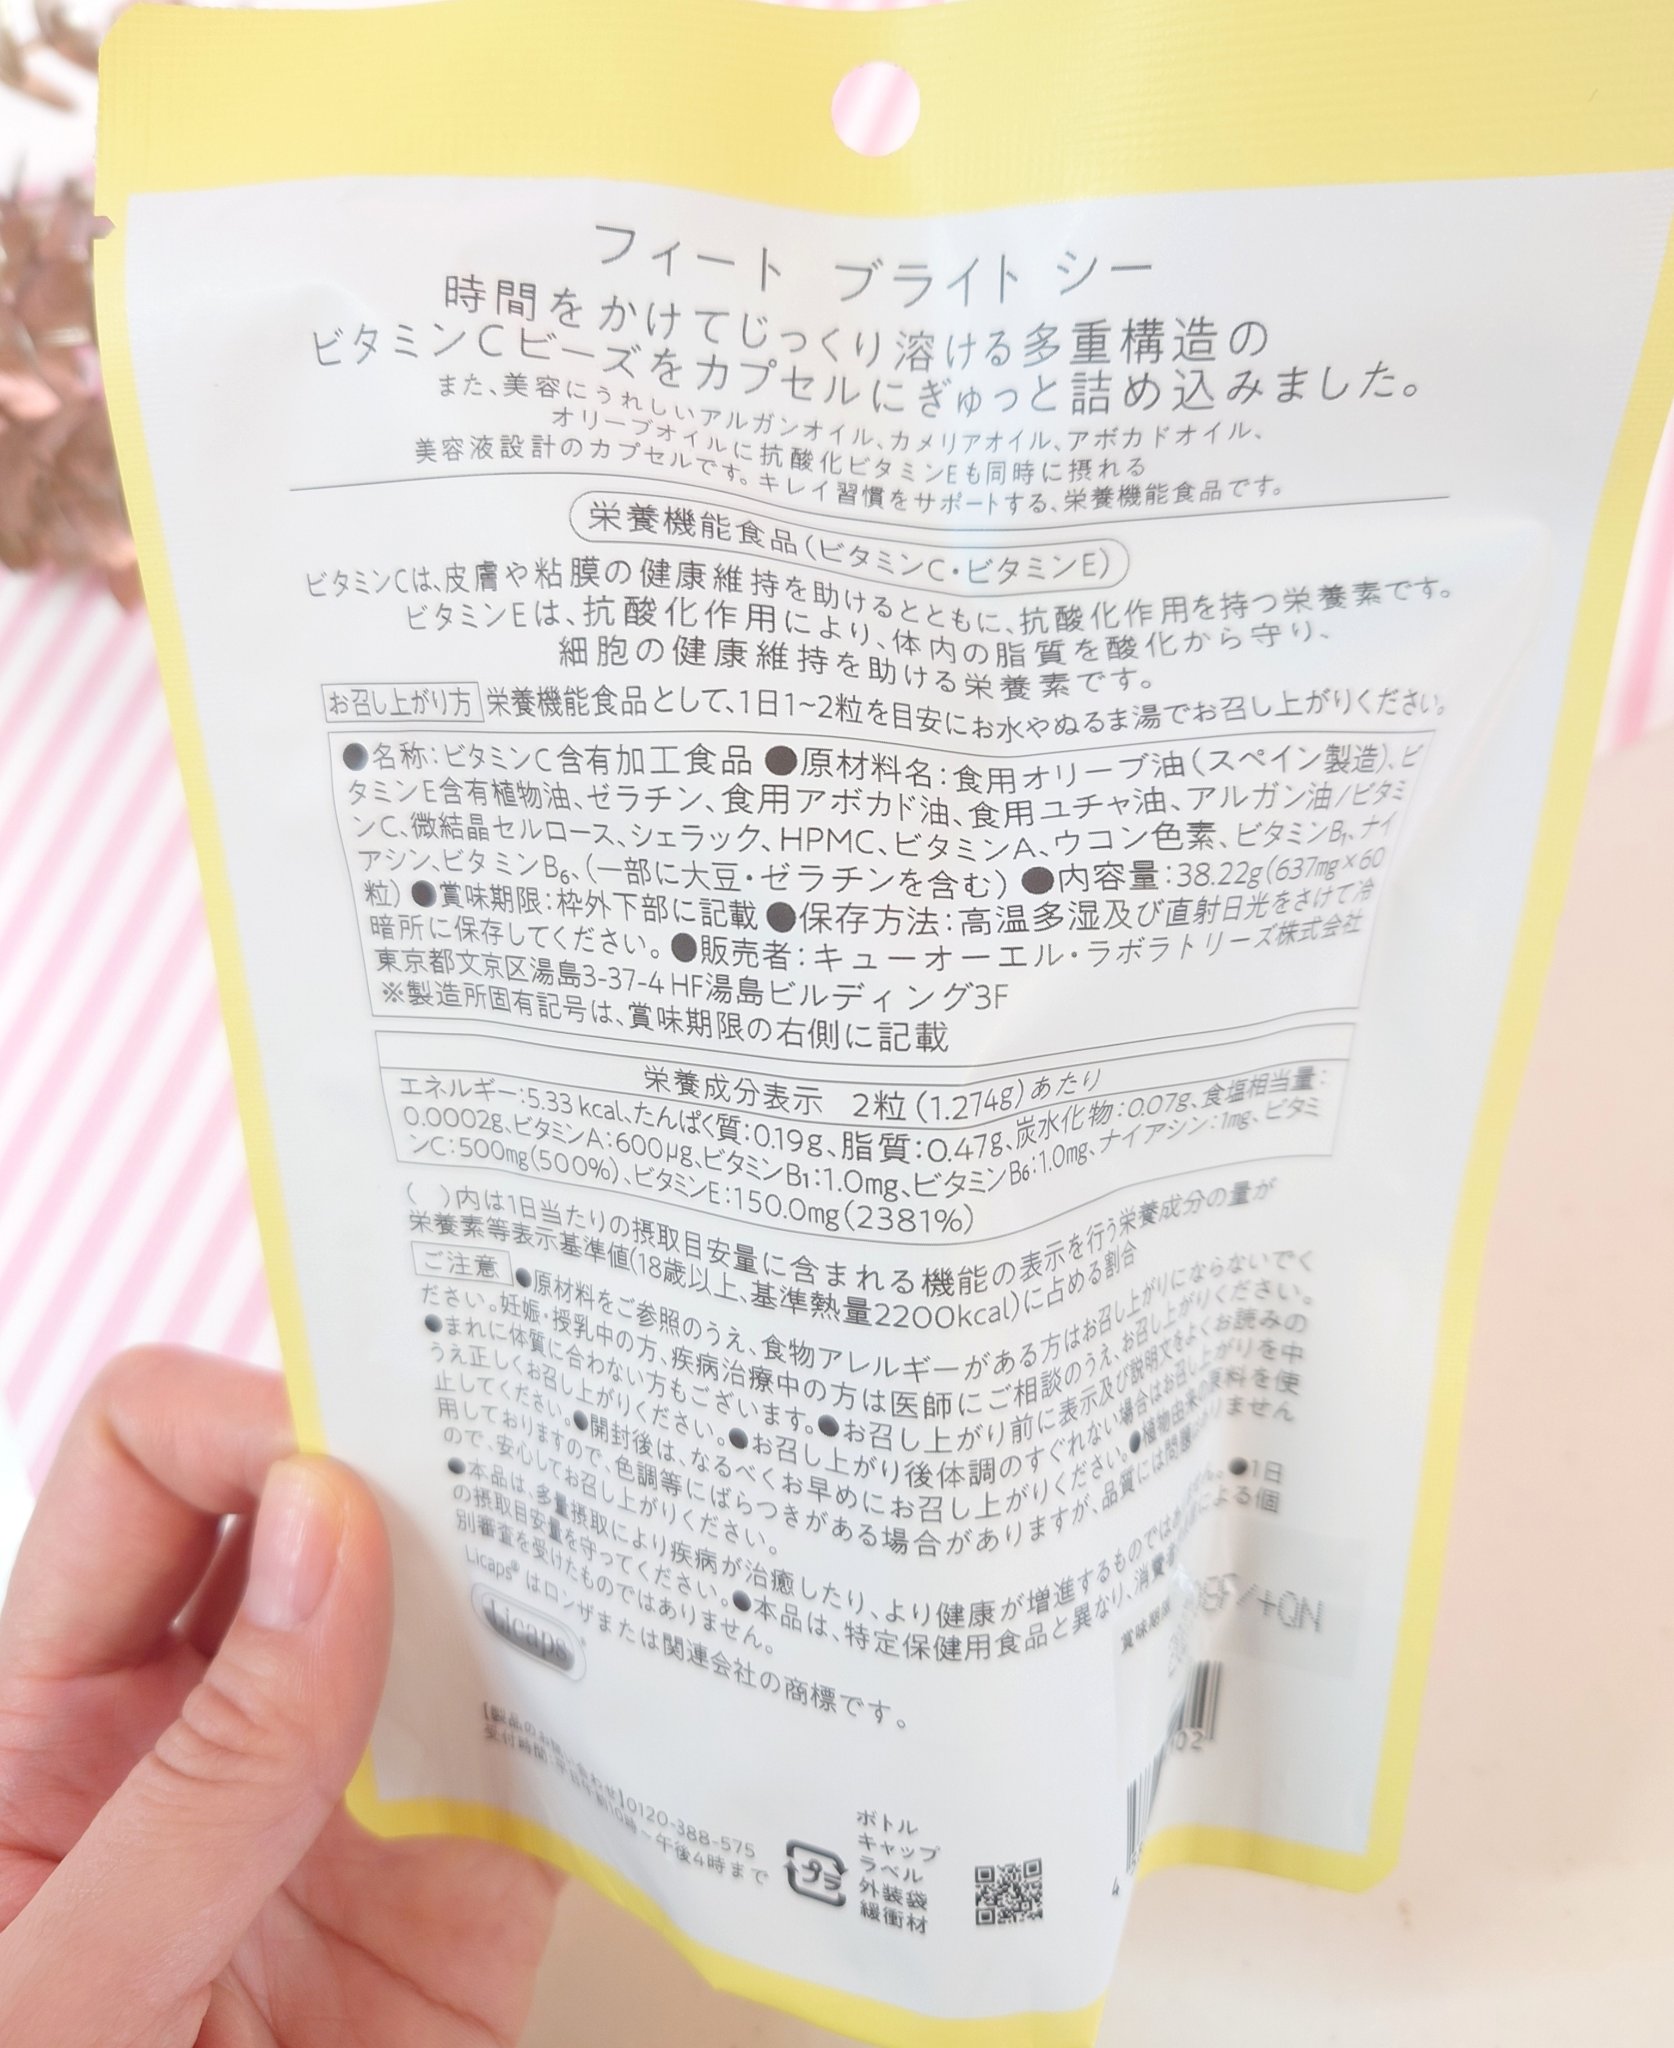 フィート ブライト シー
時間をかけてじっくり溶ける多重構造の
ビタミンCビーズをカプセルにぎゅっと詰め込みました。
また、美容にうれしいアルガンオイル、カメリアオイル、アボカドオイル、
オリーブオイルに抗酸化ビタミンEも同時に摂れる
美容液設計のカプセルです。キレイ習慣をサポートする、栄養機能食品です。
栄養機能食品(ビタミンC・ビタミンE)
ビタミンCは、皮膚や粘膜の健康維持を助けるとともに、抗酸化作用を持つ栄養素です。
ビタミンEは、抗酸化作用により、体内の脂質を酸化から守り、
細胞の健康維持を助ける栄養素です。
お召し上がり方 栄養機能食品として、1日1~2粒を目安にお水やぬるま湯でお召し上がりください。
●名称:ビタミンC含有加工食品 ●原材料名:食用オリーブ油(スペイン製造)、ビ
タミンE含有植物油、ゼラチン、食用アボカド油、食用ユチャ油、アルガン油/ビタミ
ンC、微結晶セルロース、シェラック、HPMC、ビタミンA、ウコン色素、ビタミンB₁、ナイ
アシン、ビタミンB₆、(一部に大豆・ゼラチンを含む) ●内容量:38.22g(637mg×60
粒) ●賞味期限:枠外下部に記載 ●保存方法:高温多湿及び直射日光をさけて冷
暗所に保存してください。 ●販売者:キューオーエル・ラボラトリーズ株式会社
東京都文京区湯島3-37-4 HF湯島ビルディング3F
※製造所固有記号は、賞味期限の右側に記載
栄養成分表示 2粒(1.274g)あたり
エネルギー:5.33kcal、たんぱく質:0.19g、脂質:0.47g、炭水化物:0.07g、食塩相当量:
0.0002g、ビタミンA:600μg、ビタミンB₁:1.0mg、ビタミンB₆:1.0mg、ナイアシン:1mg、ビタミ
ンC:500mg(500%)、ビタミンE:150.0mg(2381%)
( )内は1日当たりの摂取目安量に含まれる機能の表示を行う栄養成分の量が
栄養素等表示基準値(18歳以上、基準熱量2200kcal)に占める割合
ご注意 ●原材料をご参照のうえ、食物アレルギーがある方はお召し上がりにならないでく
ださい。妊娠・授乳中の方、疾病治療中の方は医師にご相談のうえ、お召し上がりください。
●まれに体質に合わない方もございます。●お召し上がり前に表示及び説明文をよくお読みの
うえ正しくお召し上がりください。●お召し上がり後体調のすぐれない場合はお召し上がりを中
止してください。●開封後は、なるべくお早めにお召し上がりください。●植物由来の原料を使
用しておりますので、色調等にばらつきがある場合がありますが、品質には問題ありません
ので、安心してお召し上がりください。
●本品は、多量摂取により疾病が治癒したり、より健康が増進するものではありません。●1日
の摂取目安量を守ってください。●本品は、特定保健用食品と異なり、消費者による個
別審査を受けたものではありません。
Licaps® はロンザまたは関連会社の商標です。
Licaps
賞味期限
【製品のお問い合わせ】0120-388-575
受付時間:平日午前10時~午後4時まで
プラ
ボトル
キャップ
ラベル
外装袋
緩衝材